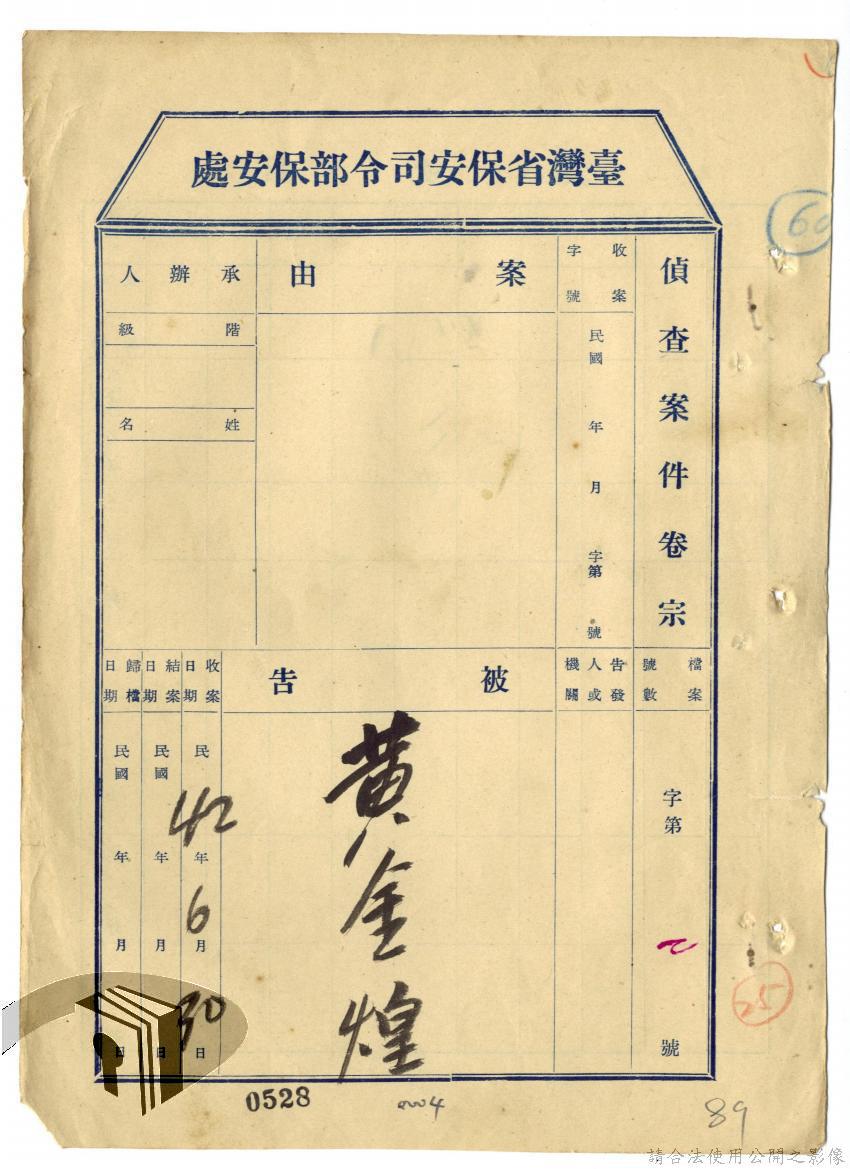 臺灣省保安司令部保安處
偵查案件卷宗
收案
字號
民國 年 月 字第 號
案由
承辦人
階級
姓名
檔案
號數
字第 號
告發
人或
機關
被告
黃金煌
收案
日期
民 42年 6月 30日
結案
日期
民國 年 月 日
歸檔
日期
民國 年 月 日
60
25
0528
0004
89
請合法使用公開之影像